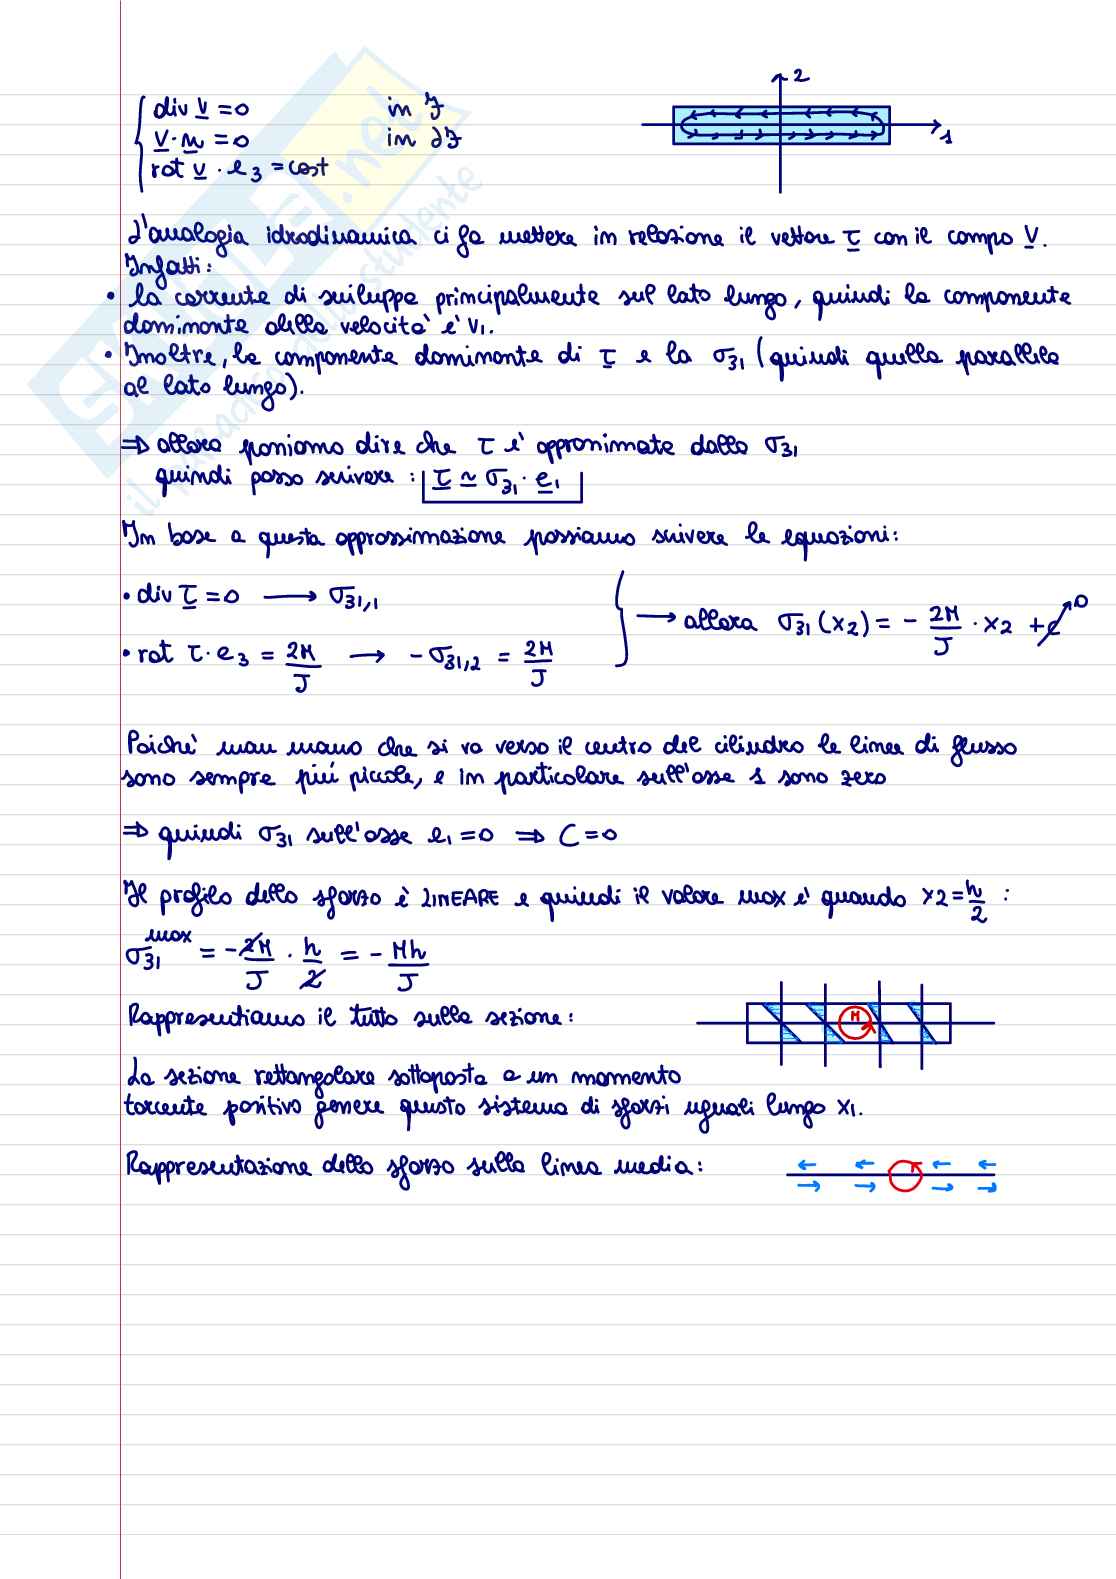 div v = 0 in F
v · n = 0 in ∂F
rot v · e3 = cost
2
1
L'analogia idrodinamica ci fa mettere in relazione il vettore τ con il campo v.
Infatti:
• La corrente di sviluppa principalmente sul lato lungo, quindi la componente
dominante della velocita' e' v1.
• Inoltre, la componente dominante di τ e la σ31 (quindi quella parallela
al lato lungo).
⇒ allora possiamo dire che τ e' approssimata dalla σ31
quindi posso scrivere: τ ≃ σ31 · e1
In base a questa approssimazione possiamo scrivere le equazioni:
• div τ = 0 → σ31,1
• rot τ · e3 = 2M/J → - σ31,2 = 2M/J
→ allora σ31 (x2) = - 2M/J · x2 + c 0
Poiche' man mano che si va verso il centro del cilindro le linee di flusso
sono sempre piú piccole, e in particolare sull'asse 1 sono zero
⇒ quindi σ31 sull'asse e1 = 0 ⇒ C = 0
Il profilo dello sforzo è LINEARE e quindi il valore max e' quando x2 = h/2 :
σ31 max = - 2M/J · h/2 = - Mh/J
Rappresentiamo il tutto sulla sezione:
M
La sezione rettangolare sottoposta a un momento
torcente positivo genera questo sistema di sforzi uguali lungo x1.
Rappresentazione dello sforzo sulla linea media:
SKUOLA.net
il paradiso dello studente